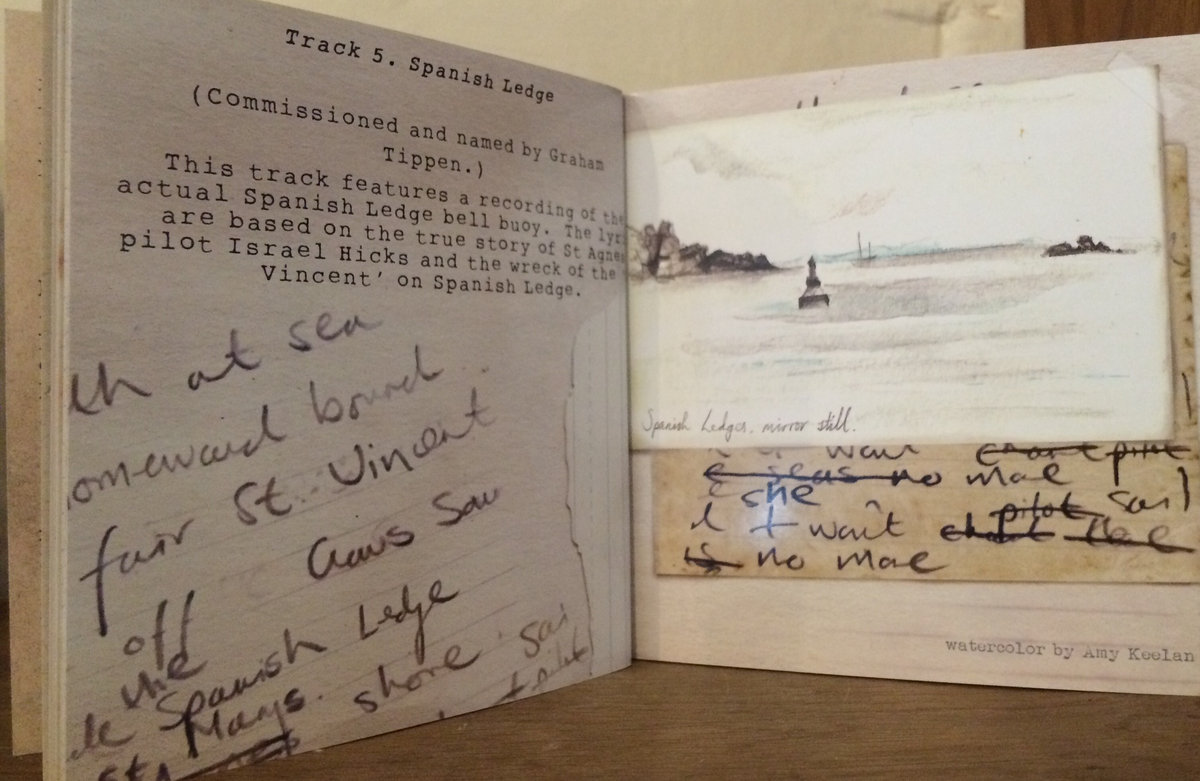 Track 5. Spanish Ledge
(Commissioned and named by Graham
Tippen.)
This track features a recording of the
actual Spanish Ledge bell buoy. The lyr
are based on the true story of St Agnes
pilot Israel Hicks and the wreck of the
Vincent' on Spanish Ledge.
at sea
omeward bound
fair St. Vincent
off
the Spanish Ledge
St Marys. shore
Spanish Ledges. mirror still.
seas no mae
she
pilot
no mae
watercolor by Amy Keelan